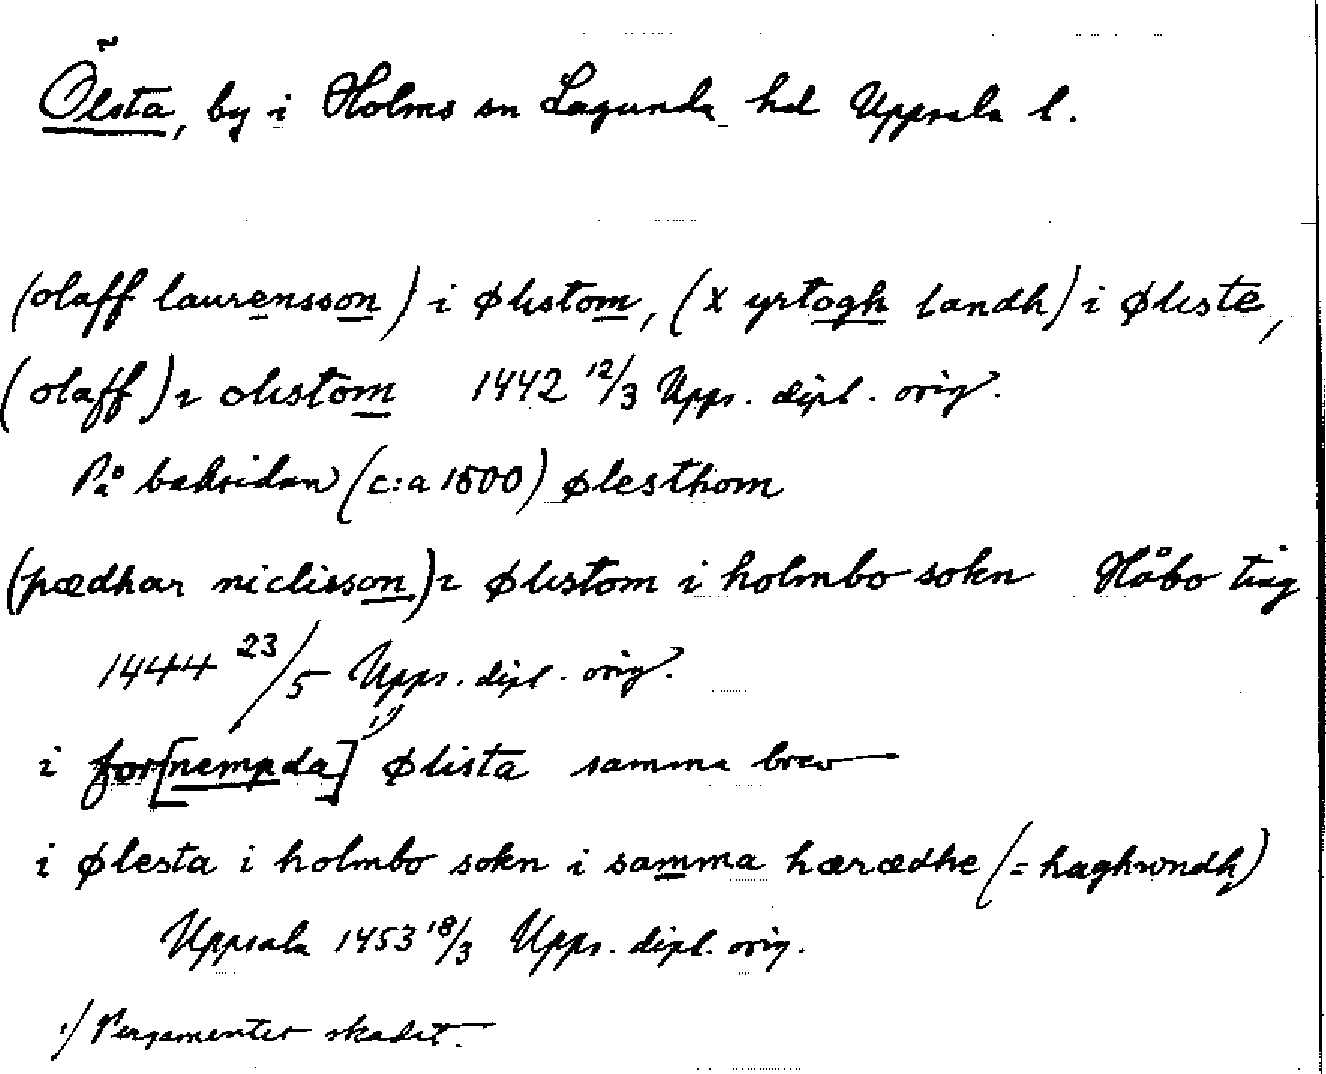 Ölsta, by i Holms sn Lagunda hd Uppsala l.
(olaff laurensson) i ølistom, (x yrtogh landh) i øliste,
(olaff) i olistom 1442 12/3 Upps. dipl. orig.
På baksidan (c:a 1500) ølesthom
(pædhar niclisson) i ølistom i holmbo sokn Håbo ting
1444 23/5 Upps. dipl. orig.
i for[nempda] 1) ølista samma brev
i ølesta i holmbo sokn i samma hærædhe (= laghwndh)
Uppsala 1453 18/3 Upps. dipl. orig.
1) Pergamentet skadat.